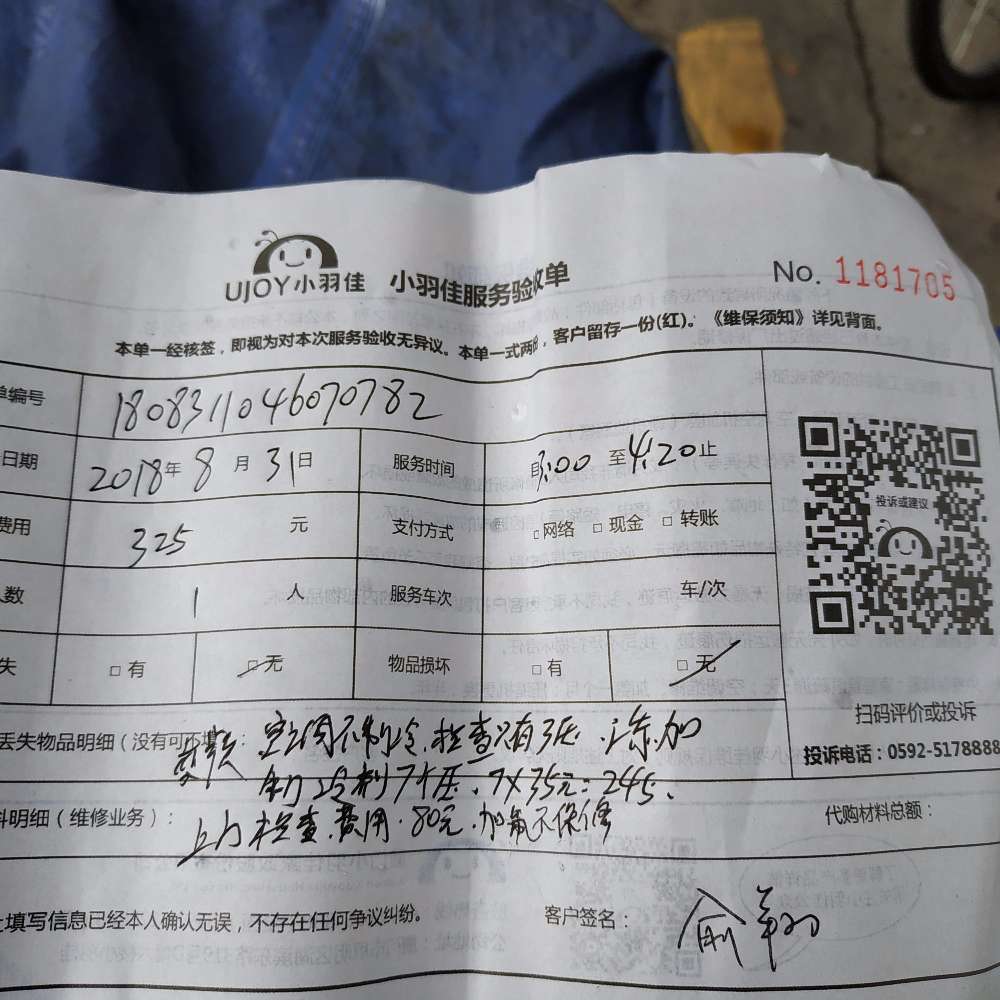 UJOY小羽佳 小羽佳服务验收单
No. 1181705
本单一经核签，即视为对本次服务验收无异议。本单一式两份，客户留存一份(红)。《维保须知》详见背面。
单编号 1808311046070782
日期 2018年 8 月 31日 服务时间 自3:00 至4:20止
费用 325 元 支付方式 □网络 □现金 □转账
人数 1 人 服务车次 车/次
失 □有 □无 物品损坏 □有 □无
投诉或建议
扫码评价或投诉
投诉电话：0592-5178888
丢失物品明细（没有可不填）：
空调不制冷，检查只有3压，添加
制冷剂7个压，7X35元=245.
料明细（维修业务）： 代购材料总额：
上门检查费用.80元.加氟不保修
上填写信息已经本人确认无误，不存在任何争议纠纷。 客户签名：